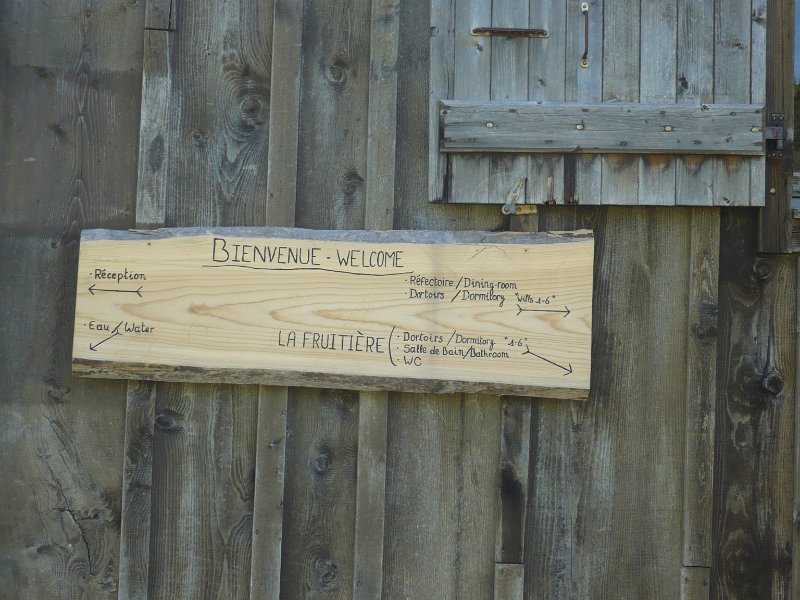 BIENVENUE - WELCOME
· Réception
· Réfectoire / Dining-room
· Dortoirs / Dormitory
· Eau / Water
LA FRUITIÈRE
· Dortoirs / Dormitory "1-6"
· Salle de Bain / Bathroom
· WC